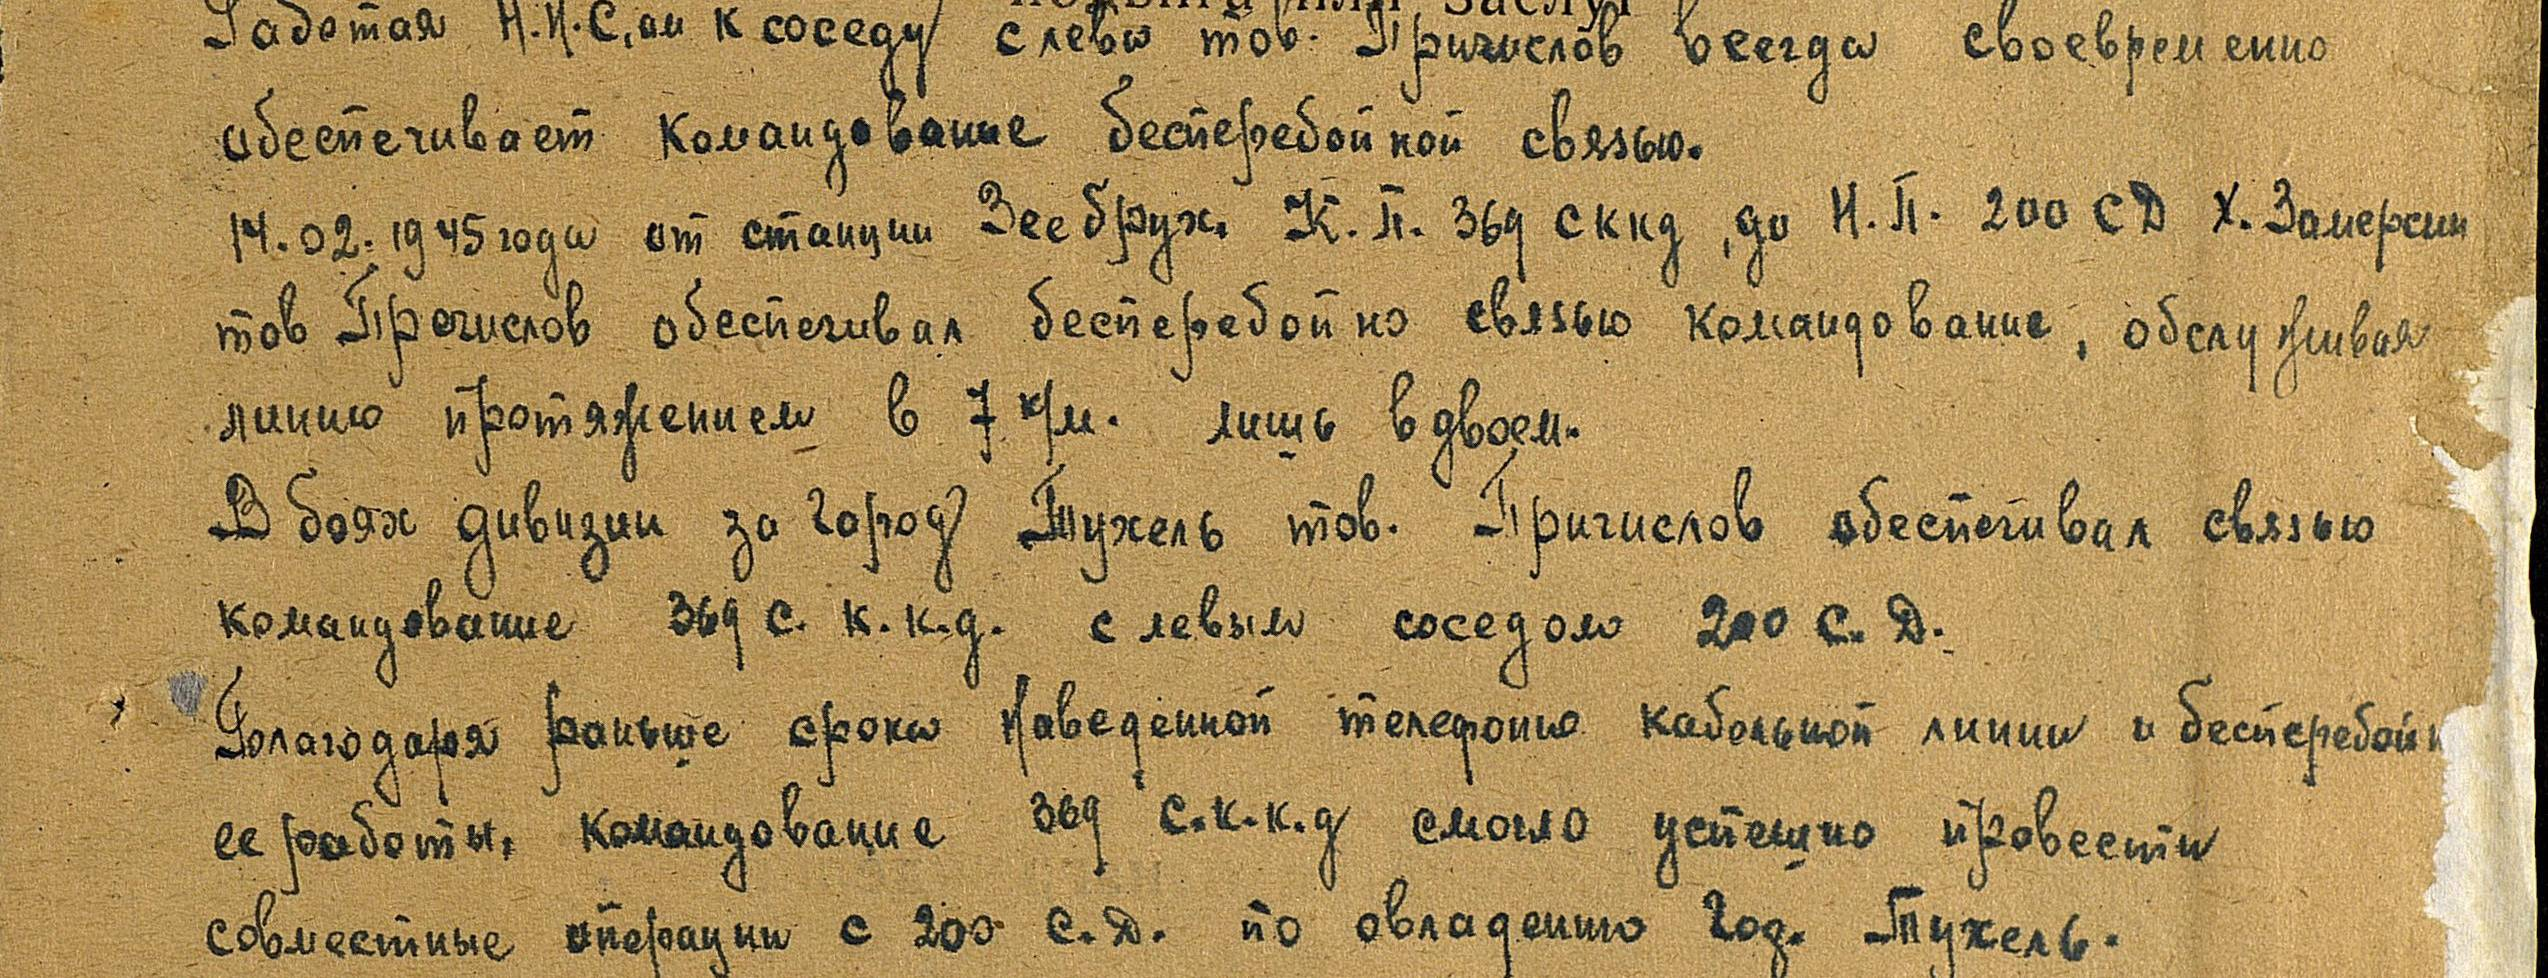 Работая Н.Н.С,ом к соседу слева тов. Причислов всегда своевременно
обеспечивает командование бесперебойной связью.
14.02.1945 года от станции Зеебрух. К.П. 369 сккд, до Н.П. 200 СД Х. Замерсин
тов Пречислов обеспечивал бесперебойно связью командование, обслуживая
линию протяжением в 7 к/м. лишь вдвоем.
В боях дивизии за город Тухель тов. Причислов обеспечивал связью
командование 369 с. к.к.д. с левым соседом 200 С.Д.
Благодаря раньше срока наведенной телефоно кабельной линии и бесперебойн
ее работы. командование 369 с.к.к.д смогло успешно провести
совместные операции с 200 С.Д. по овладению год. Тухель.